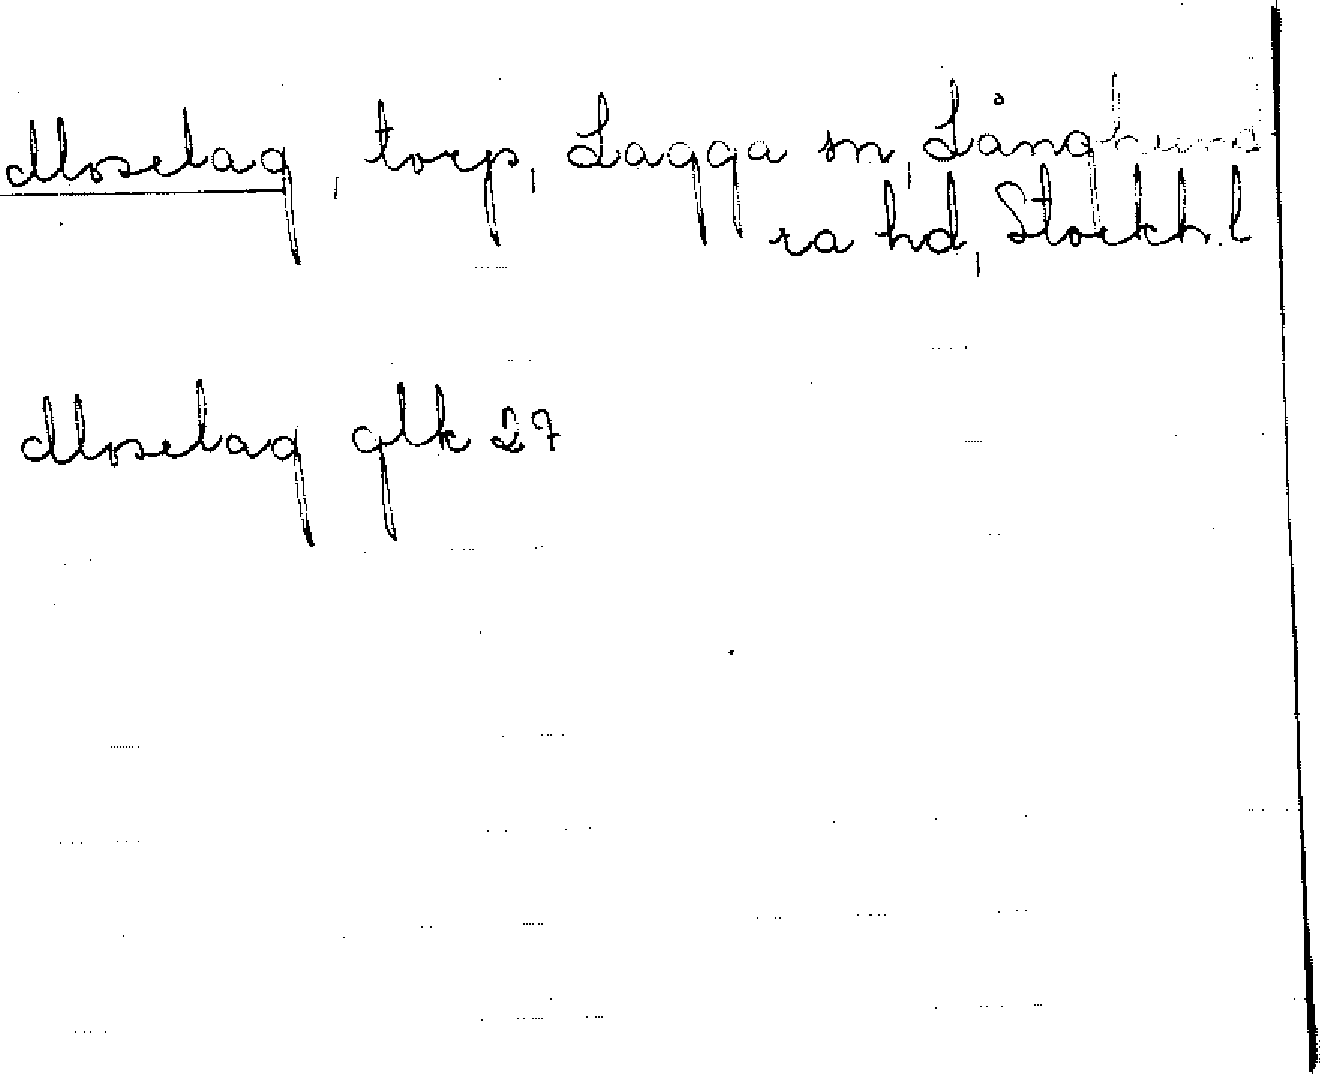 Moselag, torp, Lagga sn, Långhund
ra hd, Stockh. l
Moselag glk 27